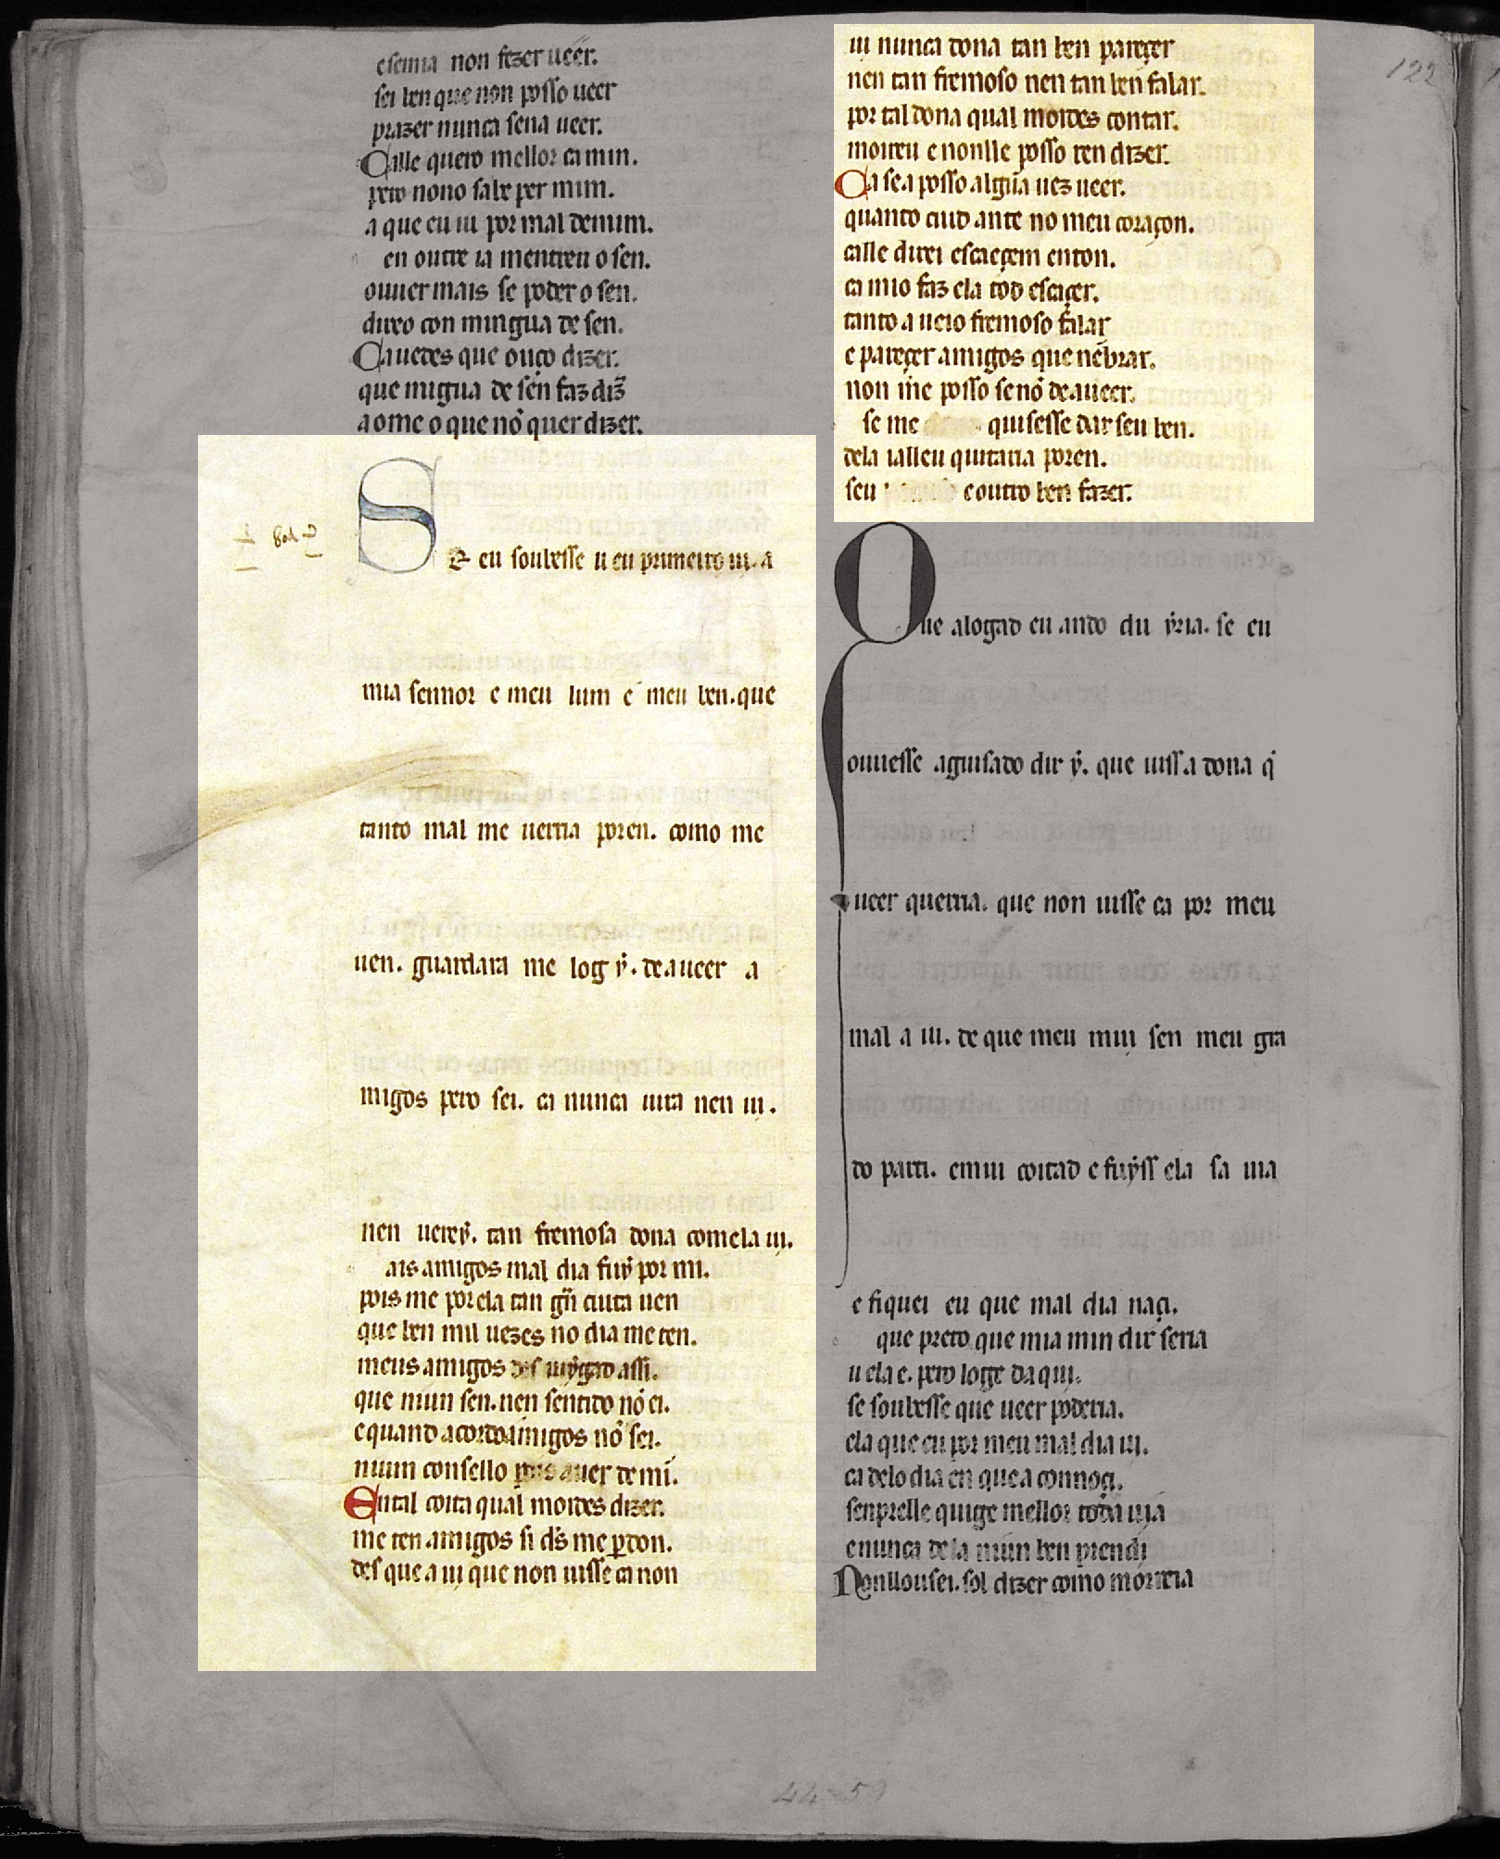 esenna non fezer ueer.
sei ben que non posso ueer
prazer nunca sena ueer.
Calle quero mellor ca min.
pero nono sabe per mim.
a que eu ui por mal demim.
en outre ia mentreu o sen.
ouuer mais se poder o sen.
duro con mingua de sen.
Cauedes que ouço dizer.
que migua de sen faz diz̃
a ome o que nõ quer dizer.
Se eu soubesse u eu primeiro ui. a
mia sennor e meu lum e meu ben. que
tanto mal me uerria poren. como me
uen. guardara me log ẏ. de a ueer a
migos pero sei. ca nunca uira nen ui.
nen uereẏ. tan fremosa dona comela ui.
ais amigos mal dia fuẏ por mi.
pois me por ela tan grã cuita uen
que ben mil uezes no dia me ten.
meus amigos des uẏgro assi.
que mun sen. nen sentido nõ ei.
e quand acordo amigos nõ sei.
niun consello pois auer de mí.
En tal coita qual moides dizer.
me ten amigos si d̃s me ꝑdon.
des que a ui que non uisse ca non
ui nunca dona tan ben pareçer
nen tan fremoso nen tan ben falar.
por tal dona qual moides contar.
moireu e nonlle posso ren dizer.
Ca se a posso algũa uez ueer.
quanto cuid ante no meu coraçon.
calle direi escaeçem enton.
ca mio faz ela tod escaeçer.
tanto a ueio fremoso falar
e pareçer amigos que nẽbrar.
non me posso se nõ de a ueer.
se me quisesse dar seu ben.
dela ialleu quitaria poren.
seu e outro ben fazer.
Que alogad eu ando du ẏria. se eu
ouuesse aguisado dir ẏ. que uiss a dona q̃
ueer querria. que non uisse ca por meu
mal a ui. de que meu mui sen meu gra
do parti. e mui coitad e fuẏss ela sa uia
e fiquei eu que mal dia naçi.
que preto que mia min dir seria
u ela e. pero loge daqui.
se soubesse que ueer poderia.
ela que eu por meu mal dia ui.
ca delo dia en que a connoçi.
senprelle quige mellor toda uia
e nunca dela niun ben prendi
Non llousei. sol dizer como morreria